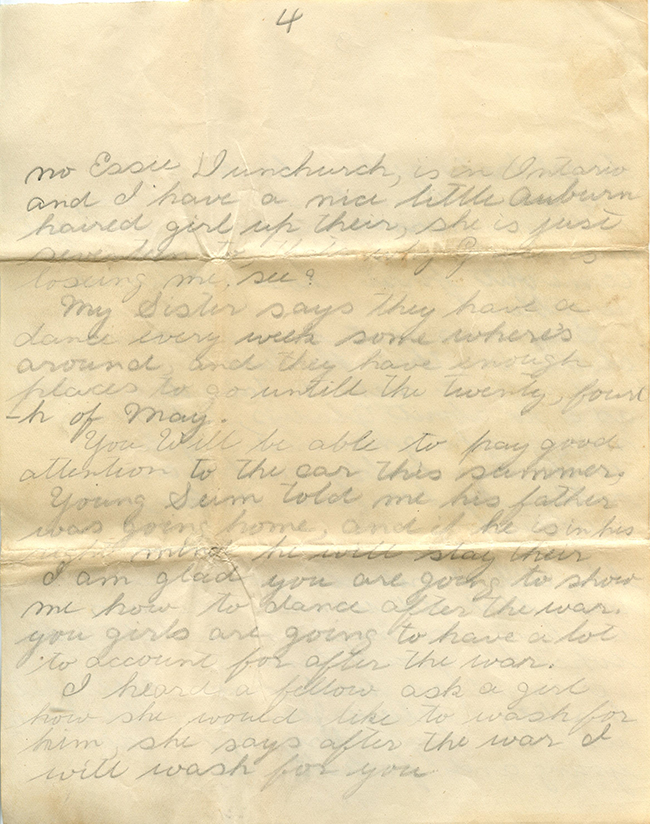 4
no Essie Dunchurch, is in Ontario
and I have a nice little Auburn
haired girl up their, she is just
loseing me, see?
My Sister says they have a
dance every week some where's
around, and they have enough
places to go untill the twenty, fourt
-h of May.
You Will be able to pay good
attention to the car this summer.
Young Seim told me his father
was going home, and if he is in his
right mind he will stay their
I am glad you are going to show
me how to dance after the war.
you girls are going to have a lot
to account for after the war.
I heard a fellow ask a girl
how she would like to wash for
him, she says after the war I
will wash for you